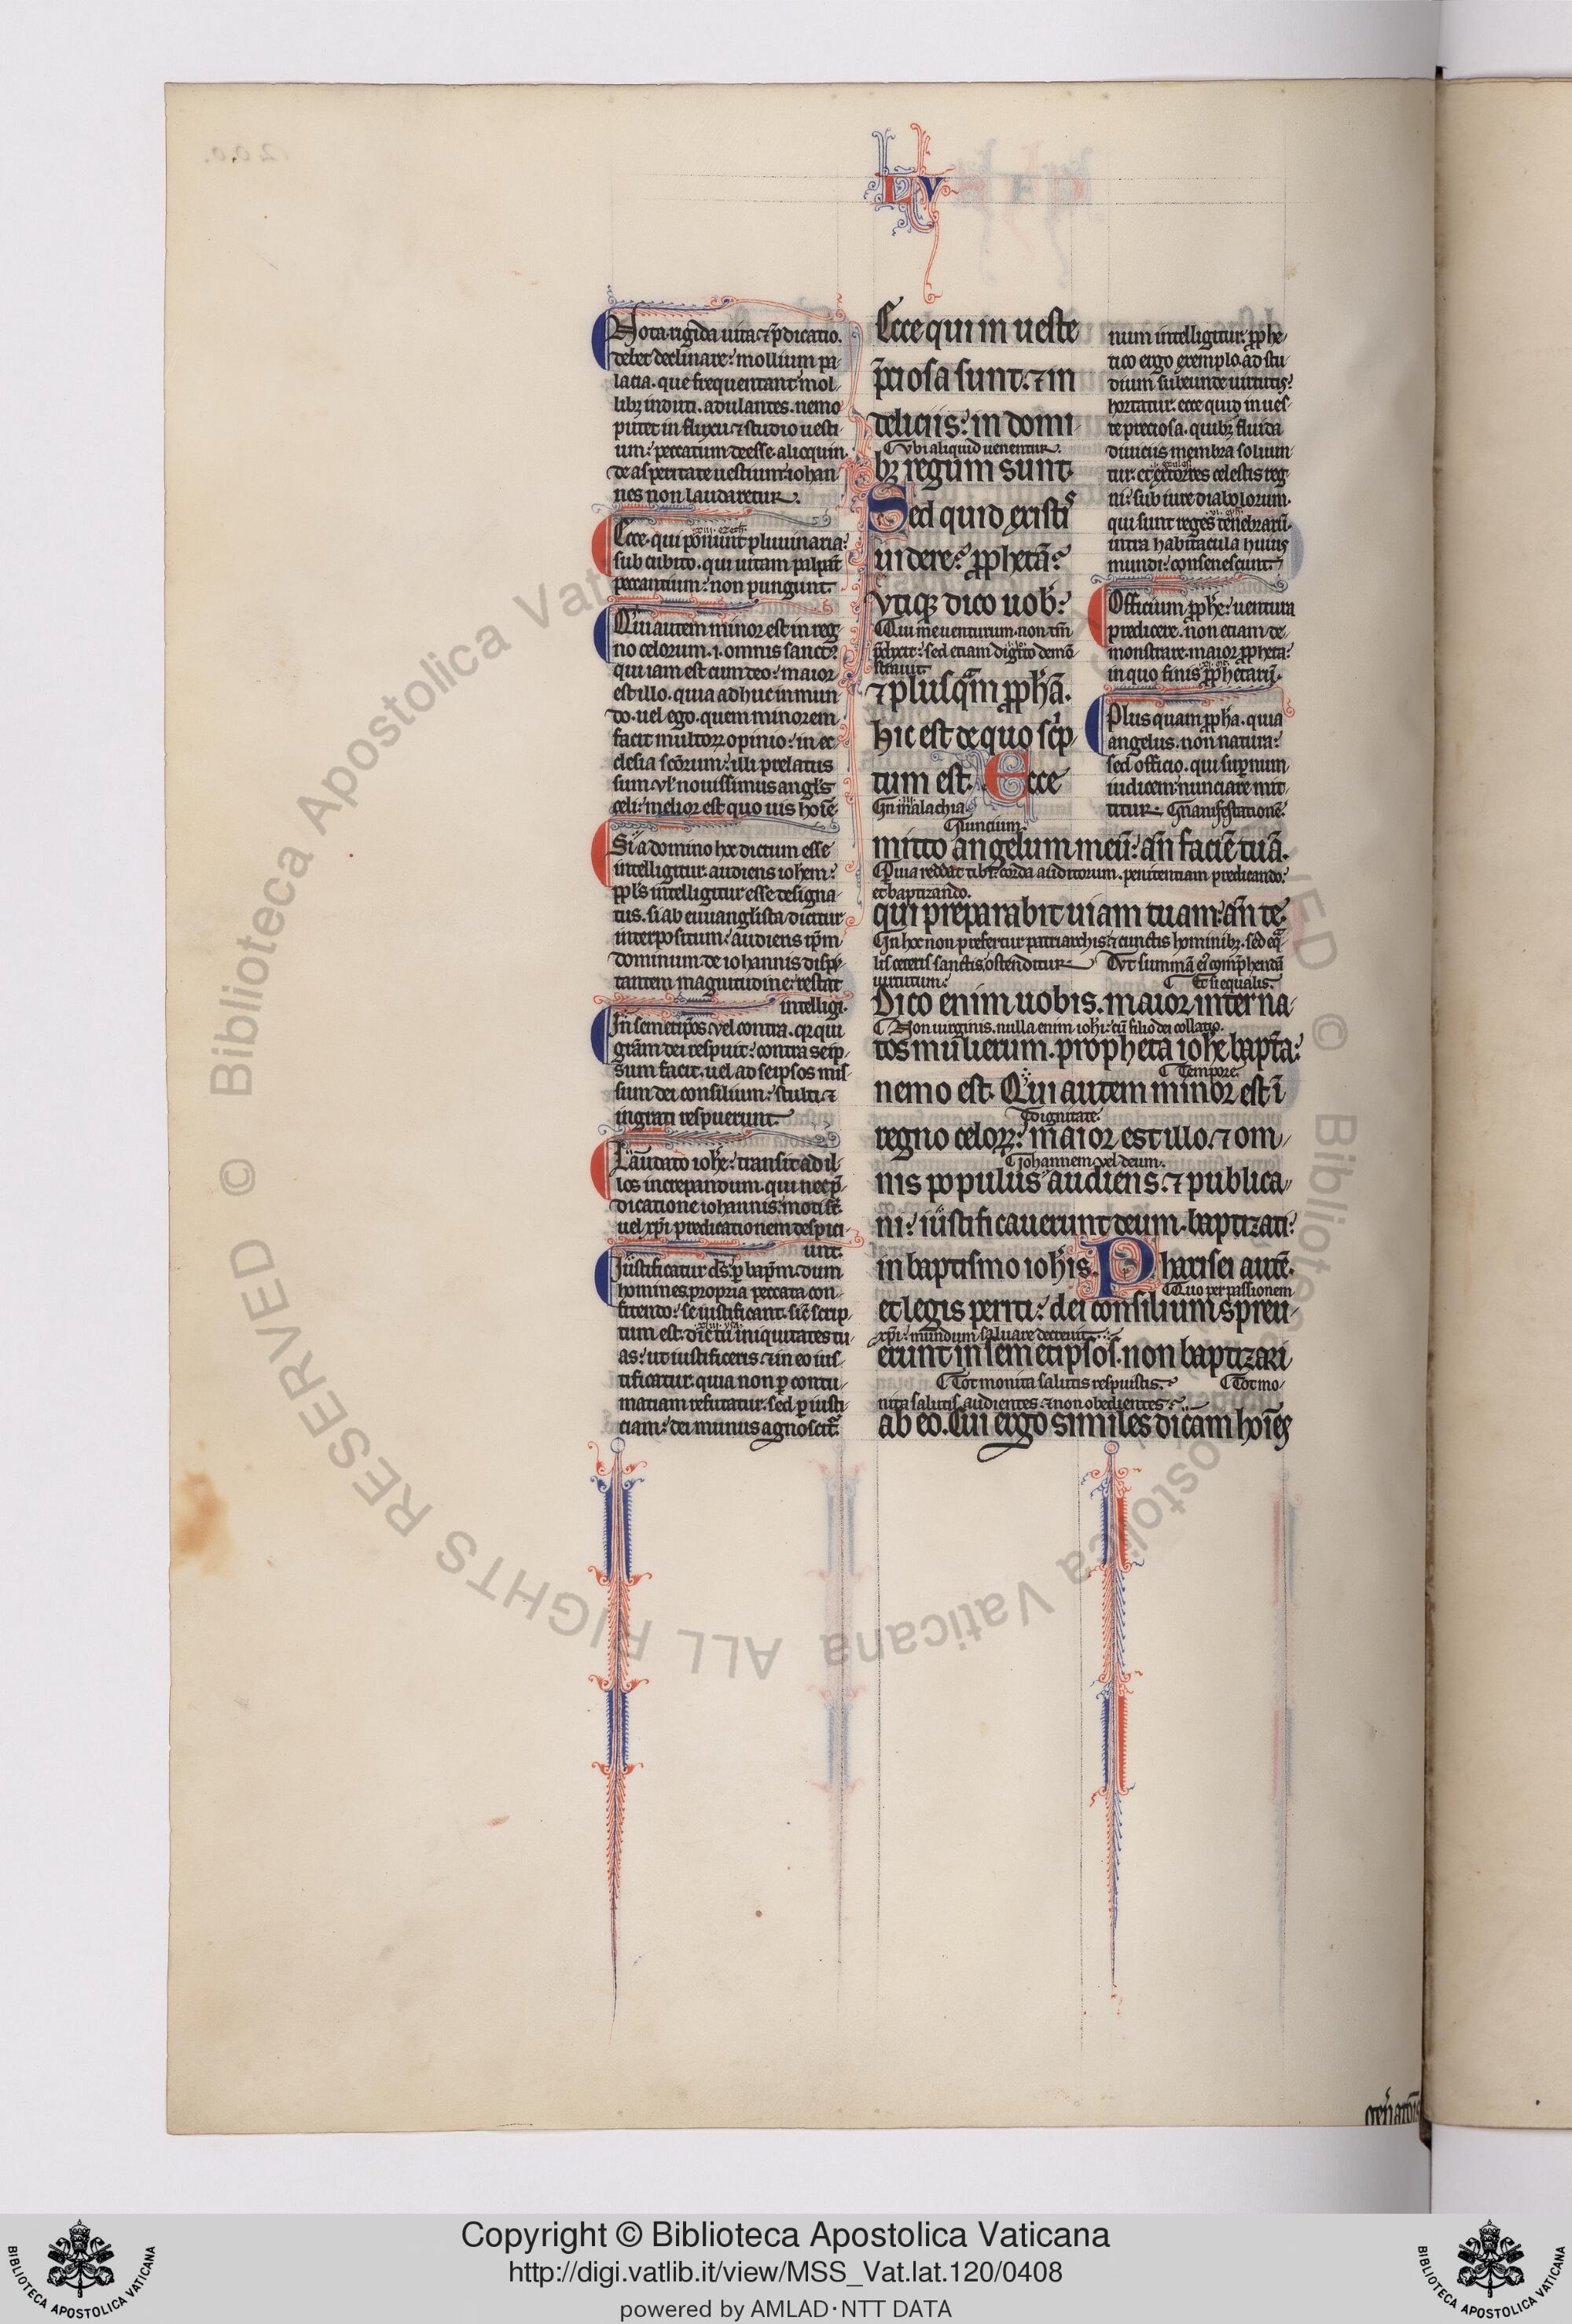 LV
Nota. rigida uita. ⁊ p̄dicatio.
debet declinare: mollium pa-
lacia. que frequentant mol-
libꝫ induti. adulantes. nemo
putet in fluxu ⁊ studio uesti-
um: peccatum deesse. alioquin
de asperitate uestium: iohan-
nes non laudaretur.
xiii. ezech.
Ecce. qui ponunt puluinaria:
sub cubito. qui uitam palpāt
peccantium: non pungunt.
Qui autem minor est in reg-
no celorum. .i. omnis sanctꝰ
qui iam est cum deo: maior
est illo. quia adhuc in mun
do. uel ego. quem minorem
facit multoꝝ opinio: in ec-
clesia sc̄orum: illi prelatus
sum. vl̓ nouissimus angl̓s
celi: melior est quouis hoīe.
Si a domino hoc dictum esse
intelligitur. audiens ioh̓em:
ppl̓s intelligitur esse designa-
tus. si ab euuanglista dicitur
interpositum: audiens ip̄m
dominum de iohannis dispu-
tantem magnitudine: restat
intelligi.
In semetip̄os. vel contra. qꝛ qui
gr̄am dei respuit: contra seip-
sum facit. uel ad seipsos mis-
sum dei consilium: stulti ⁊
ingrati respuerunt.
Laudato ioh̓e: transit ad il-
los increpandum. qui nec p̄-
dicatione iohannis: moti st̄
uel xp̄i predicationem despici-
unt.
Iustificatur d̄s. ꝑ bap̄m. dum
homines propria peccata con-
fitendo: se iustificant. sic̄ scrip-
tum est. dic tu iniquitates tu-
as: ut iustificeris. ⁊ in eo ius-
tificatur. quia non ꝑ contu-
matiam refutatur. sed ꝑ iusti-
ciam: dei munus agnoscit᷑.
Ecce qui in ueste
p̄ciosa sunt. ⁊ in
deliciis: in domi-
Vbi aliquid uenentur.
bꝫ regum sunt.
Sed quid existis
uidere: ꝓphetā:
vtiqꝫ dico uob̓:
Qui me uenturum. non tm̄
p̄dixit: sed etiam digito demō-
strauit.
⁊ plusqͣm ꝓph̓ā.
hic est de quo sc̓p-
tum est. Ecce
In malachia.
Nuncium.
mitto angelum meū: an̄ faciē tuā.
Quia reddat tibi corda auditorum. penitentiam predicando:
et baptizando.
qui preparabit uiam tuam: an̄ te.
In hoc non prefertur patriarchis ⁊ cunctis hominibꝫ. sed eq̄-
lis ceteris sanctis ostenditur. Vt summā eiꝰ comp̄hendā
uirtutum:
Et si equalis.
Dico enim uobis. maior inter na-
Non uirginis. nulla enim ioh̓i: cū filio dei collatio.
tos mulierum. propheta ioh̓e bapt̄a:
Tempore.
nemo est. Qui autem minor est ī
dignitate.
regno celoꝝ: maior est illo. ⁊ om-
Iohannem. vel deum.
nis populus audiens. ⁊ publica-
ni: iustificauerunt deum. baptizati:
in baptismo ioh̓is. Pharisei autē.
Quo per passionem
et legis periti: dei consilium spreu-
xp̄i: mundum saluare decreuit.
erunt in semetipsos. non baptizari
Tot monita salutis respuistis.
Tot mo-
nita salutis audientes: ⁊ non obedientes.
ab eo. Cui ergo similes dicam hoīes
num intelligitur: ꝓphe-
tico ergo exemplo. ad stu-
dium subeunde uirtutis:
hortatur. ecce quid in ues-
te preciosa. quibꝫ fluida
diuiciis membra soluun-
tur. et extorres celestis reg-
ni: sub iure diabolorum.
qui sunt reges tenebrarū.
intra habitacula huius
mundi: consenescunt.
Officium ꝓph̓e: uentura
predicere. non etiam de-
monstrare. maior ꝓpheta:
in quo finis ꝓphetarū.
Plus quam ꝓph̓a. quia
angelus. non natura:
sed officio. qui sup̄num
iudicem: nunciare mit-
titur. Manifestationē.
Copyright © Biblioteca Apostolica Vaticana
http://digi.vatlib.it/view/MSS_Vat.lat.120/0408
powered by AMLAD·NTT DATA
BIBLIOTECA APOSTOLICA VATICANA
BIBLIOTECA APOSTOLICA VATICANA
© Biblioteca Apostolica Vaticana ALL RIGHTS RESERVED